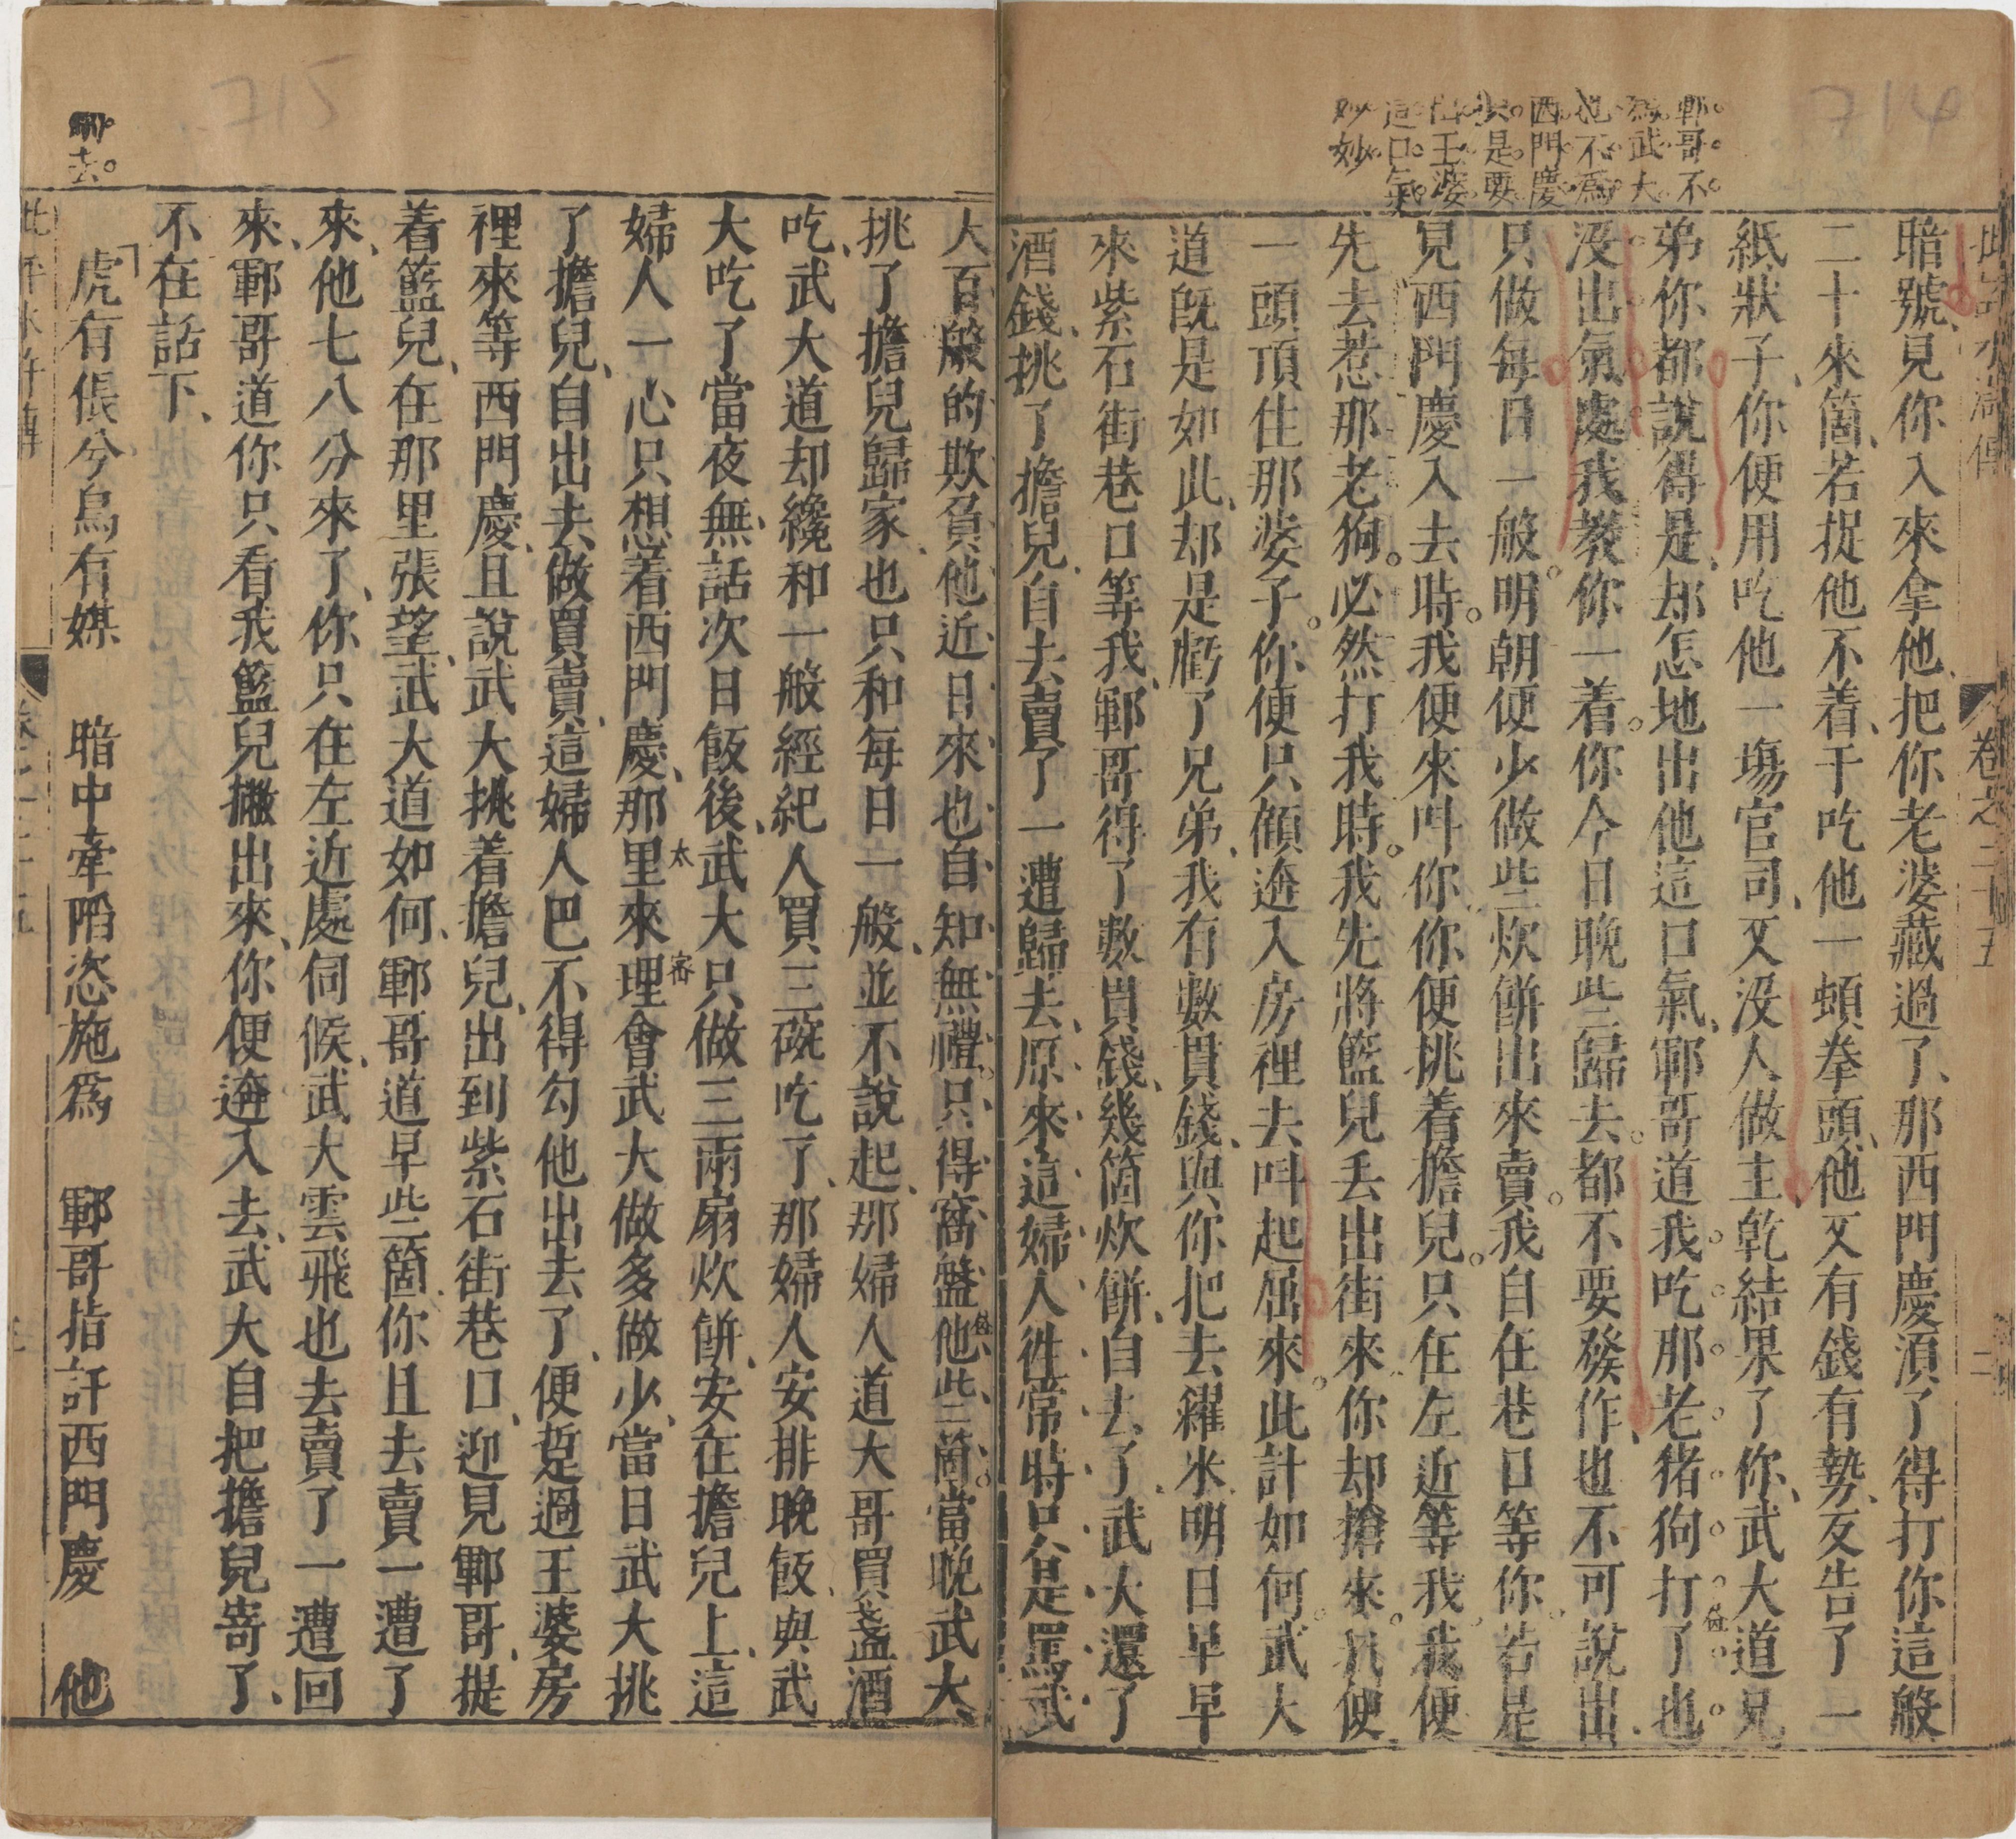 鄆哥不
為武大
也不為
西門慶
只是要
出王婆
這口氣
妙妙
批評水滸傳
卷之二十五
二
暗號、見你入來拿他、把你老婆藏過了、那西門慶須了得打你這般
二十來箇、若捉他不着、干吃他一頓拳頭、他又有錢有勢、反告了一
紙狀子、你便用吃他一塲官司、又没人做主、乾結果了你、武大道兄
弟你都說得是、却怎地出他這口氣、鄆哥道我吃那老猪狗打了也
没出氣處我教你一着。你今日晚些歸去。都不要發作、也不可說出
只做每日一般。明朝便少做些炊餅出來賣。我自在巷口等你。若是
見西門慶入去時。我便來呌你、你便挑着擔兒。只在左近等我、我便
先去惹那老狗。必然打我時。我先將籃兒丢出街來、你却搶來。我便
一頭頂住那婆子。你便只顧迯入房裡去呌起屈來。此計如何。武大
道旣是如此、却是虧了兄弟、我有數貫錢、與你把去糴米、明日早早
來紫石街巷口等我、鄆哥得了數貫錢、幾箇炊餅、自去了、武大還了
酒錢、挑了擔兒、自去賣了一遭歸去、原來這婦人徃常時只是罵武
大百般的欺負他近日來也自知無禮、只得窩盤他些箇。當晚武大
挑了擔兒歸家、也只和每日一般、並不說起、那婦人道大哥買盞酒
吃、武大道却纔和一般經紀人買三碗吃了、那婦人安排晚飯、與武
大吃了當夜無話次日飯後、武大只做三兩扇炊餅、安在擔兒上、這
婦人一心只想着西門慶、那里來理會武大做多做少、當日武大挑
了擔兒、自出去做買賣、這婦人巴不得勾他出去了、便踅過王婆房
裡來等西門慶、且說武大挑着擔兒、出到紫石街巷口、迎見鄆哥、提
着籃兒、在那里張望、武大道如何、鄆哥道早些箇、你且去賣一遭了
來、他七八分來了、你只在左近處伺候、武大雲飛也去賣了一遭回
來、鄆哥道你只看我籃兒撇出來、你便迯入去、武大自把擔兒寄了、
不在話下、
刪去。
虎有倀兮鳥有媒　暗中牽陷恣施爲　鄆哥指訐西門慶　他